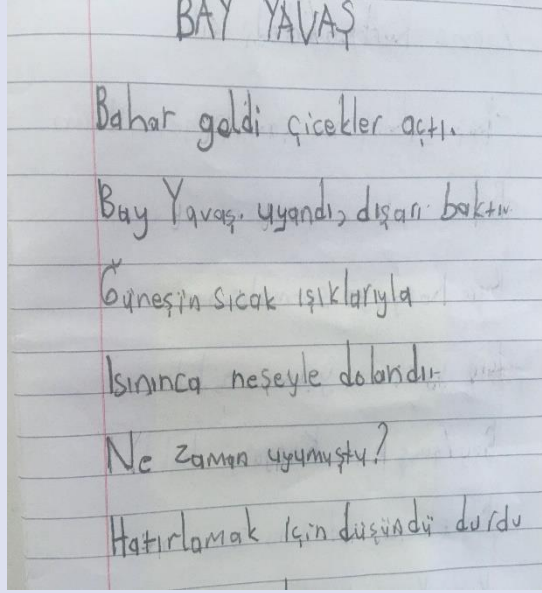 BAY YAVAŞ
Bahar geldi çicekler açtı.
Bay Yavaş. uyandı, dışarı baktı.
Güneşin sıcak ışıklarıyla
Isınınca neşeyle dolandı.
Ne zaman uyumuştu?
Hatırlamak için düşündü durdu